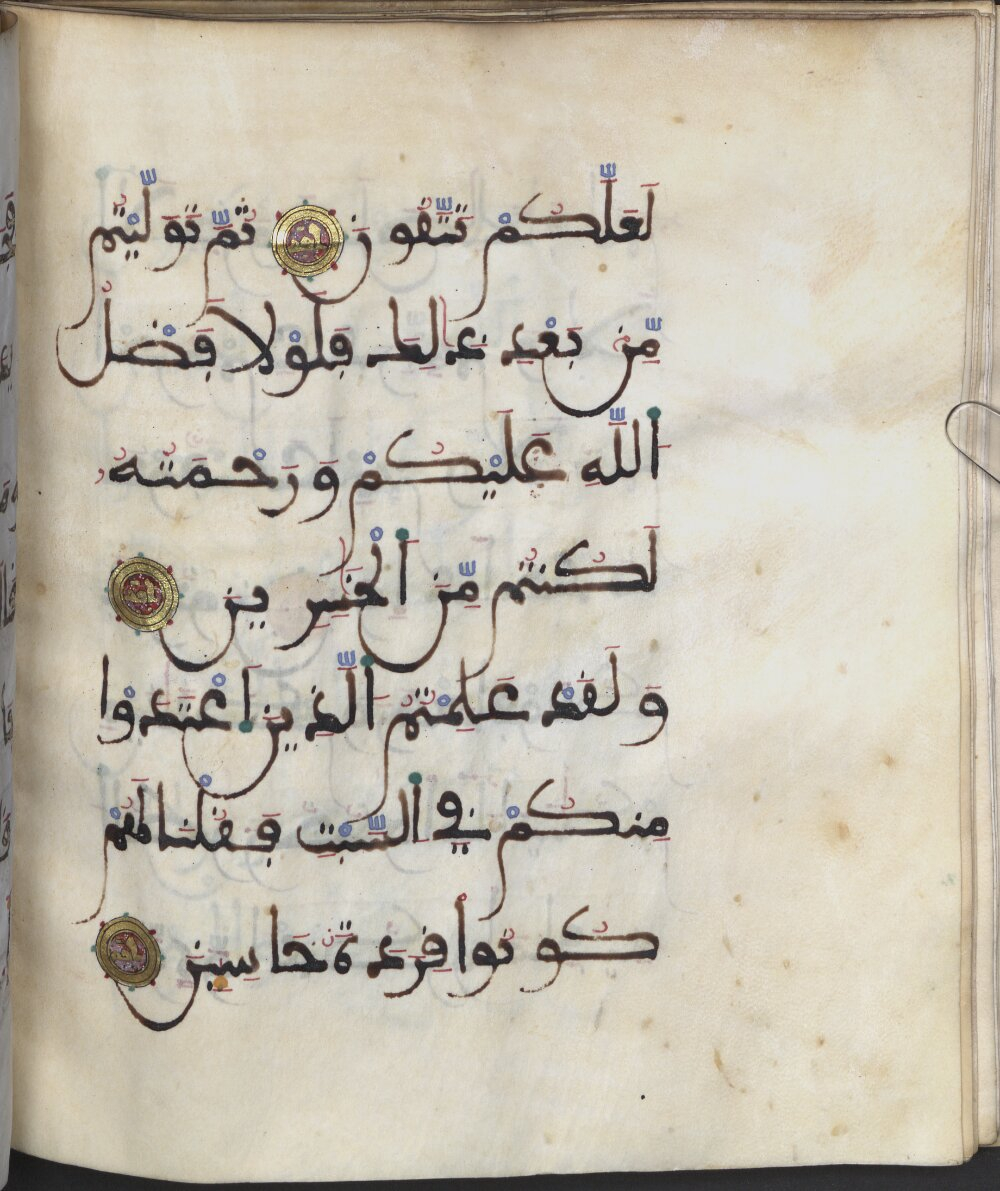 لَعَلَّكُمْ تَتَّقُونَ ثُمَّ تَوَلَّيْتُم
مِّنْ بَعْدِ ذَٰلِكَ فَلَوْلَا فَضْلُ
اَللَّهِ عَلَيْكُمْ وَرَحْمَتُهُ
لَكُنتُم مِّنَ اَلْخَٰسِرِينَ
وَلَقَدْ عَلِمْتُمُ اُلَّذِينَ اَعْتَدَوْا
مِنكُمْ فِي اِلسَّبْتِ فَقُلْنَا لَهُمْ
كُونُوا قِرَدَةً خَاسِـِٔينَ